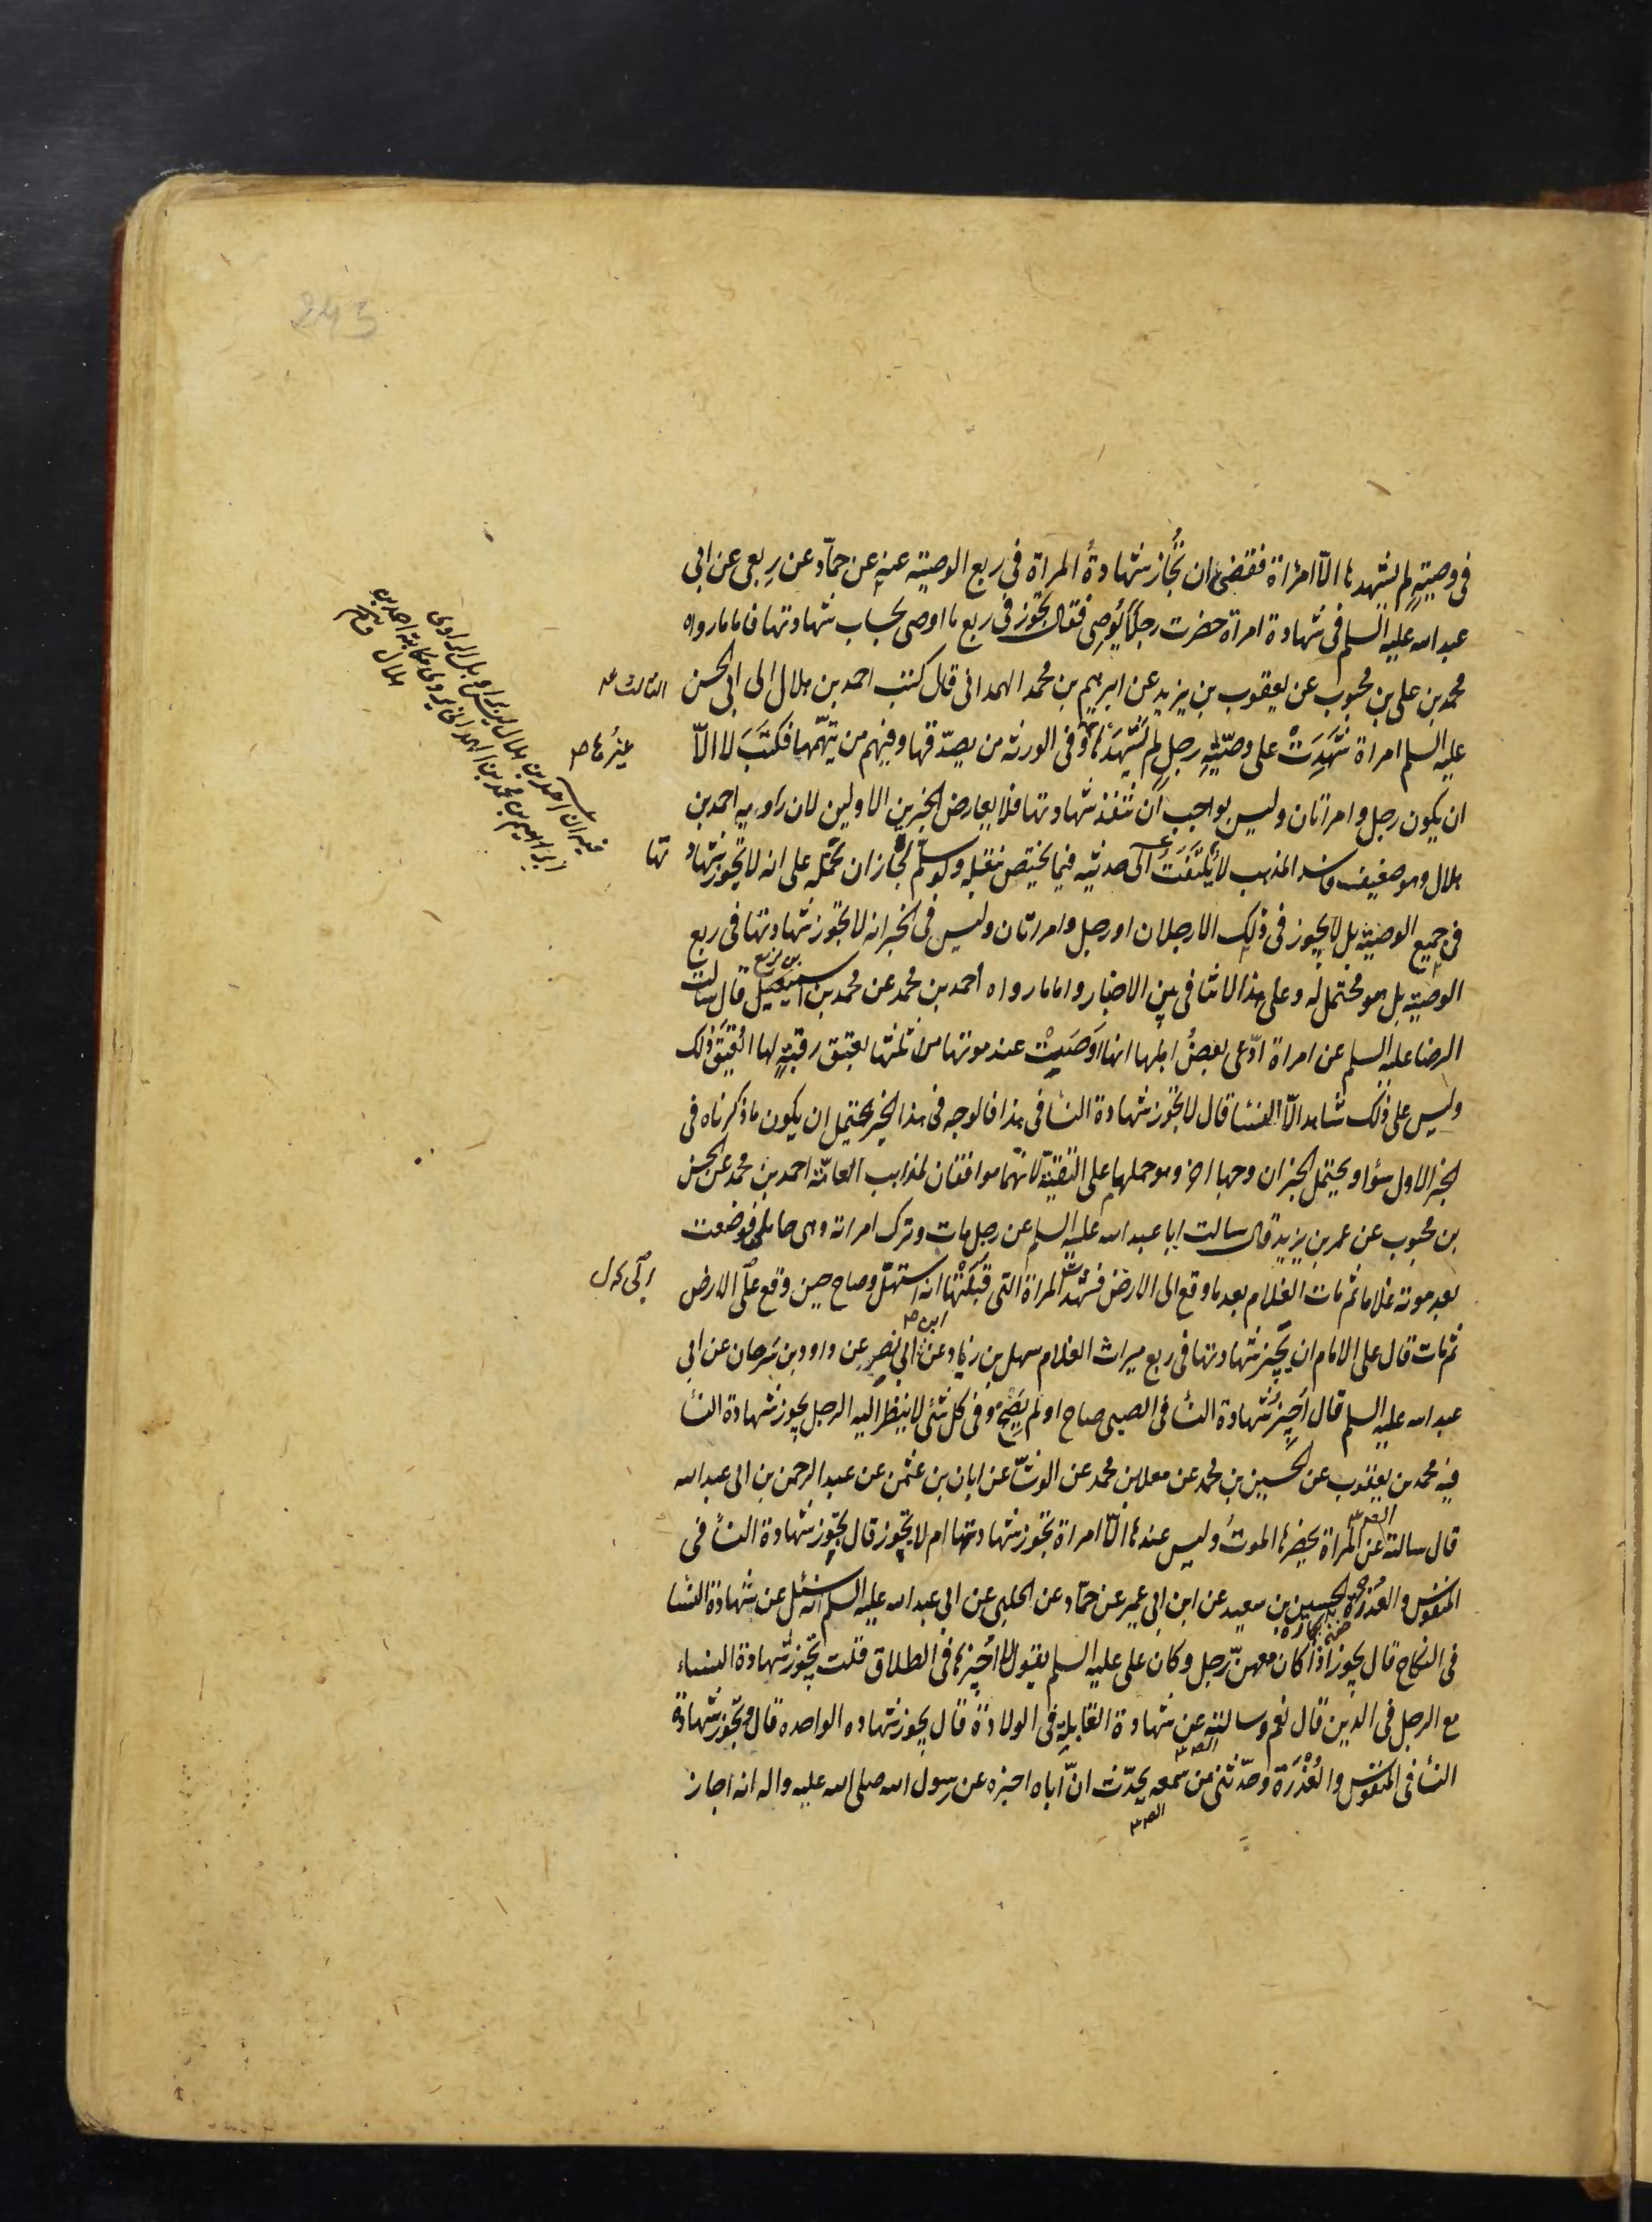 243
فى وصية لم يشهدها الا امراة فقضى ان تجاز شهادة المراة فى ربع الوصية عنه عن حماد عن ربعى عن ابى
عبد الله عليه السلم فى شهادة امراة حضرت رجلا يوصى فقال تجوز فى ربع ما اوصى بحساب شهادتها فاما ما رواه
محمد بن على بن محبوب عن يعقوب بن يزيد عن ابرهيم بن محمد الهمدانى قال كتب احمد بن هلال الى ابى الحسن
الثالث عه
عليه السلم امراة شهدت على وصية رجل لم يشهدها وفى الورثة من يصدقها وفيهم من يتهمها فكتب لا الا
غيرها صح
ان يكون رجل وامراتان وليس بواجب ان تنفذ شهادتها فلا يعارض الخبرين الاولين لان راويه احمد بن
هلال وهو ضعيف فاسد المذهب لا يلتفت الى حديثه فيما يختص بنقله ولو سلم لجاز ان نحمله على انه لا تجوز شهاد
تها
فى جميع الوصية بل لا يجوز فى ذلك الا رجلان او رجل وامراتان وليس فى الخبر انه لا تجوز شهادتها فى ربع
الوصية بل هو محتمل له وعلى هذا لا تنافى بين الاخبار واما ما رواه احمد بن محمد عن محمد بن اسمعيل قال سالت
بن بزيع
الرضا عليه السلم عن امراة ادعى بعض اهلها انها اوصت عند موتها من ثلثها بعتق رقبة لها ايعتق ذلك
وليس على ذلك شاهد الا النسا قال لا تجوز شهادة النسا فى هذا فالوجه فى هذا الخبر يحتمل ان يكون ما ذكرناه فى
الخبر الاول سواء ويحتمل الخبران وجها اخر وهو حملهما على التقية لانهما موافقان لمذاهب العامة احمد بن محمد عن الحسن
بن محبوب عن عمر بن يزيد قال سالت ابا عبد الله عليه السلم عن رجل مات وترك امراته وهى حامل فوضعت
بعد موته غلاما ثم مات الغلام بعد ما وقع الى الارض فشهدت المراة التى قبلتها انه استهل وصاح حين وقع على الارض
ثم مات قال على الامام ان يجيز شهادتها فى ربع ميراث الغلام سهل بن زياد عن ابى نصر عن داود بن سرحان عن ابى
ابن صح
عبد الله عليه السلم قال اجيز شهادة النسا فى الصبى صاح او لم يصح وفى كل شئ لا ينظر اليه الرجل يجوز شهادة النسا
فيه محمد بن يعقوب عن الحسين بن محمد عن معلا بن محمد عن الوشا عن ابان بن عثمن عن عبد الرحمن بن ابى عبد الله
قال سالته عن المراة يحضرها الموت وليس عندها الا امراة تجوز شهادتها ام لا تجوز قال تجوز شهادة النسا فى
المنفوس والعذرة الحسين بن سعيد عن ابن ابى عمير عن حماد عن الحلبى عن ابى عبد الله عليه السلم انه سئل عن شهادة النسا
فى النكاح قال يجوز اذا كان معهن رجل وكان على عليه السلم يقول لا اجيزها فى الطلاق قلت تجوز شهادة النساء
مع الرجل فى الدين قال نعم وسالته عن شهادة القابلة فى الولادة قال يجوز شهاده الواحده قال وتجوز شهادة
النسا فى المنفوس والعذرة وحدثنى من سمعه يحدث ان اباه اخبره عن رسول الله صلى الله عليه واله انه اجاز